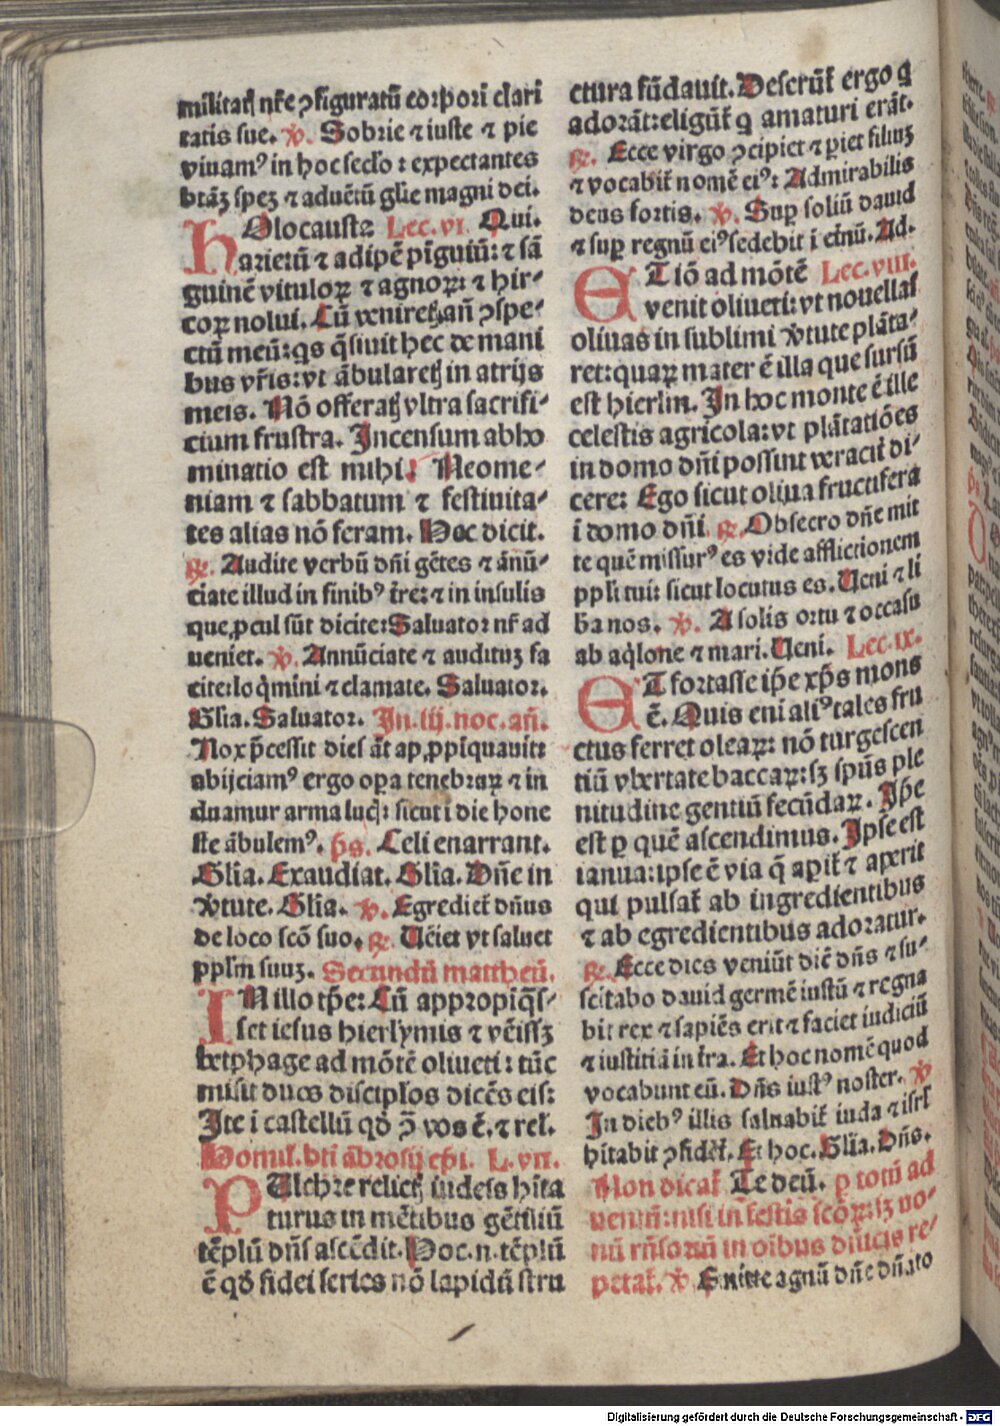 militatꝭ nr̄e ꝯfiguratū corꝑori clari
tatis sue. ℣. Sobrie ⁊ iuste ⁊ pie
viuamꝰ in hoc secl'o : expectantes
btā́ȝ speȝ ⁊ aduētū gl'ie magni dei.
HOlocausta Lec.vi. Qui.
arietū ⁊ adipē pīguiū: ⁊ sā
guinē vituloꝝ ⁊ agnoꝝ: ⁊ hir-
coꝝ nolui. Cū veniretꝭ añ ꝯspe-
ctū meū: qs q̄siuit hec de mani
bus vr̄is: vt ābularetꝭ in atrijs
meis. Nō offeratꝭ vltra sacrifi-
cium frustra. Incensum abho
minatio est mihi. Neome-
niam ⁊ sabbatum ⁊ festiuita-
tes alias nō feram. Hoc dicit.
℟. Audite verbū dñi gētes ⁊ ānū-
ciate illud in finibꝰ tr̄e: ⁊ in insulis
que ꝓcul sūt dicite: Saluator nr̄ ad
ueniet. ℣. Annūciate ⁊ audituȝ fa
cite: loq̄mini ⁊ clamate. Saluator.
Gl'ia. Saluator. In .iij. noc. añ.
Nox p̄cessit dies āt apꝓpīquauit:
abijciamꝰ ergo oꝑa tenebraꝝ ⁊ in
duamur arma lucꝭ: sicut i die hone
ste ābulemꝰ. p̄s. Celi enarrant.
Gl'ia. Exaudiat. Gl'ia. Dñe in
v̓tute. Gl'ia. ℣. Egrediet̄ dñus
de loco scō suo. ℟. Uēiet vt saluet
ppl'm suuȝ. Secundū mattheū.
IN illo tp̄e: Cū appropiq̄s-
set iesus hierl'ymis ⁊ vēissȝ
betphage ad mōtē oliueti: tūc
misit duos discipl'os dicēs eis:
Ite i castellū qd̄ ꝯ̄ vos ē. ⁊ rel'.
Homil'. bt̄i ābrosij ep̄i. L.vii.
PUlchre relictꝭ iudeis hīta
turus in mētibus gētiliū
tēplū dñs ascēdit. Hoc .n. tēplū
ē qd̄ fidei series nō lapidū stru
ctura fūdauit. Deserūt̄ ergo q
adorāt: eligūt̄ q amaturi erāt.
℟. Ecce virgo ꝯcipiet ⁊ ꝑiet filiuȝ
⁊ vocabit̄ nomē eiꝰ: Admirabilis
deus fortis. ℣. Suꝑ soliū dauid
⁊ suꝑ regnū eiꝰ sedebit i et̄nū. Ad.
ETiō ad mōtē Lec.viii.
venit oliueti: vt nouellas
oliuas in sublimi v̓tute plāta-
ret: quaꝝ mater ē illa que sursū
est hierl'm. In hoc monte ē ille
celestis agricola: vt plātatiōes
in domo dñi possint veracit̄ di-
cere: Ego sicut oliua fructifera
i domo dñi. ℟. Obsecro dñe mit
te quē missurꝰ es vide afflictionem
ppl'i tui: sicut locutus es. Ueni ⁊ li
b̄a nos. ℣. A solis ortu ⁊ occasu
ab aq̄lone ⁊ mari. Ueni. Lec.ix.
ET fortasse ip̄e xp̄s mons
ē. Quis eni aliꝰ tales fru
ctus ferret oleaꝝ: nō turgescen
tiū vbertate baccaꝝ: sȝ spūs ple
nitudine gentiū fecūdaꝝ. Ip̄e
est ꝑ quē ascendimus. Ipse est
ianua: ipse ē via q̄ aꝑit̄ ⁊ aperit
qui pulsat̄ ab ingredientibus
⁊ ab egredientibus adoratur.
℟. Ecce dies veniūt dic̄ dñs ⁊ su-
scitabo dauid germē iustū ⁊ regna
bit rex ⁊ sapiēs erit ⁊ faciet iudiciū
⁊ iustitiā in tr̄a. Et hoc nomē quod
vocabunt eū. Dñs iustꝰ noster. ℣.
In diebꝰ illis saluabit̄ iuda ⁊ isrl'
hitabit ꝯfidēt̄. Et hoc. Gl'ia. Dñs.
Non dicat̄ Te deū. ꝑ totū ad
uentū: nisi in festis scōꝝ: sȝ no-
nū rn̄soriū in oībus dn̄icis re-
petat̄. ℣. Emitte agnū dñe dn̄ato
Digitalisierung gefördert durch die Deutsche Forschungsgemeinschaft - DFG